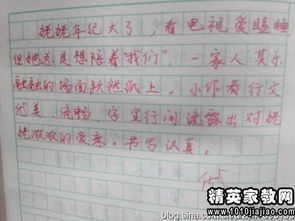 姥姥年纪大了，看电视爱瞌睡
但她总是想陪着“我们”，一家人其乐
融融的场面跃然纸上。小作者行文
优美、流畴，字里行间流露出对姥
姥浓浓的爱意。书写认真。
blog.sina.com.cn
精英家教网
www.1010jiajiao.com